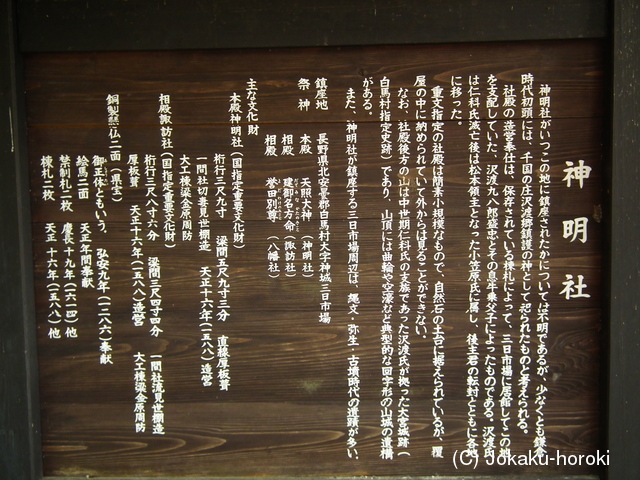 神明社
神明社がいつこの地に鎮座されたかについては不明であるが、少なくとも鎌倉
時代初頭には、千国の庄沢渡郷鎮護の神として祀られたものと考えられる。
社殿の造営奉仕は、保存されている棟札によって、三日市場に居館してこの地
を支配していた、沢渡九八郎盛忠とその長牛兼父子によったものである。沢渡氏
は仁科氏滅亡後は松本領主となった小笠原氏に属し、後主君の転封とともに各地
に移った。
重文指定の社殿は簡素小規模なもので、自然石の土台に据えられているが、覆
屋の中に納められていて外からは見ることができない。
なお、社殿後方の山は中世期仁科氏の支族であった沢渡氏が拠った大宮城跡(
白馬村指定史跡)であり、山頂には曲輪や空濠など典型的な回字形の山城の遺構
がある。
また、神明社が鎮座する三日市場周辺は、縄文・弥生・古墳時代の遺蹟が多い。
鎮座地 長野県北安曇郡白馬村大字神城三日市場
祭神 本殿 天照大神(神明社)
相殿 建御名方命(諏訪社)
相殿 誉田別尊(八幡社)
主な文化財
本殿神明社(国指定重要文化財)
桁行三尺九寸 梁間五尺九寸三分 直篠厚板葺
一間社切妻見世棚造 天正十六年(一五八八)造営
大工棟梁金原周防
相殿諏訪社(国指定重要文化財)
桁行三尺八寸六分 梁間三尺四寸四分 一間社流見世棚造
厚板葺 天正十六年(一五八八)造営 大工棟梁金原周防
銅製懸仏二面(県宝)
御正体ともいう。 弘安九年(一二八六)奉献
絵馬二面 天正年間奉献
禁制札二枚 慶長十九年(一六一四)他
棟札二枚 天正十六年(一五八八)他
(C) Jokaku-horoki